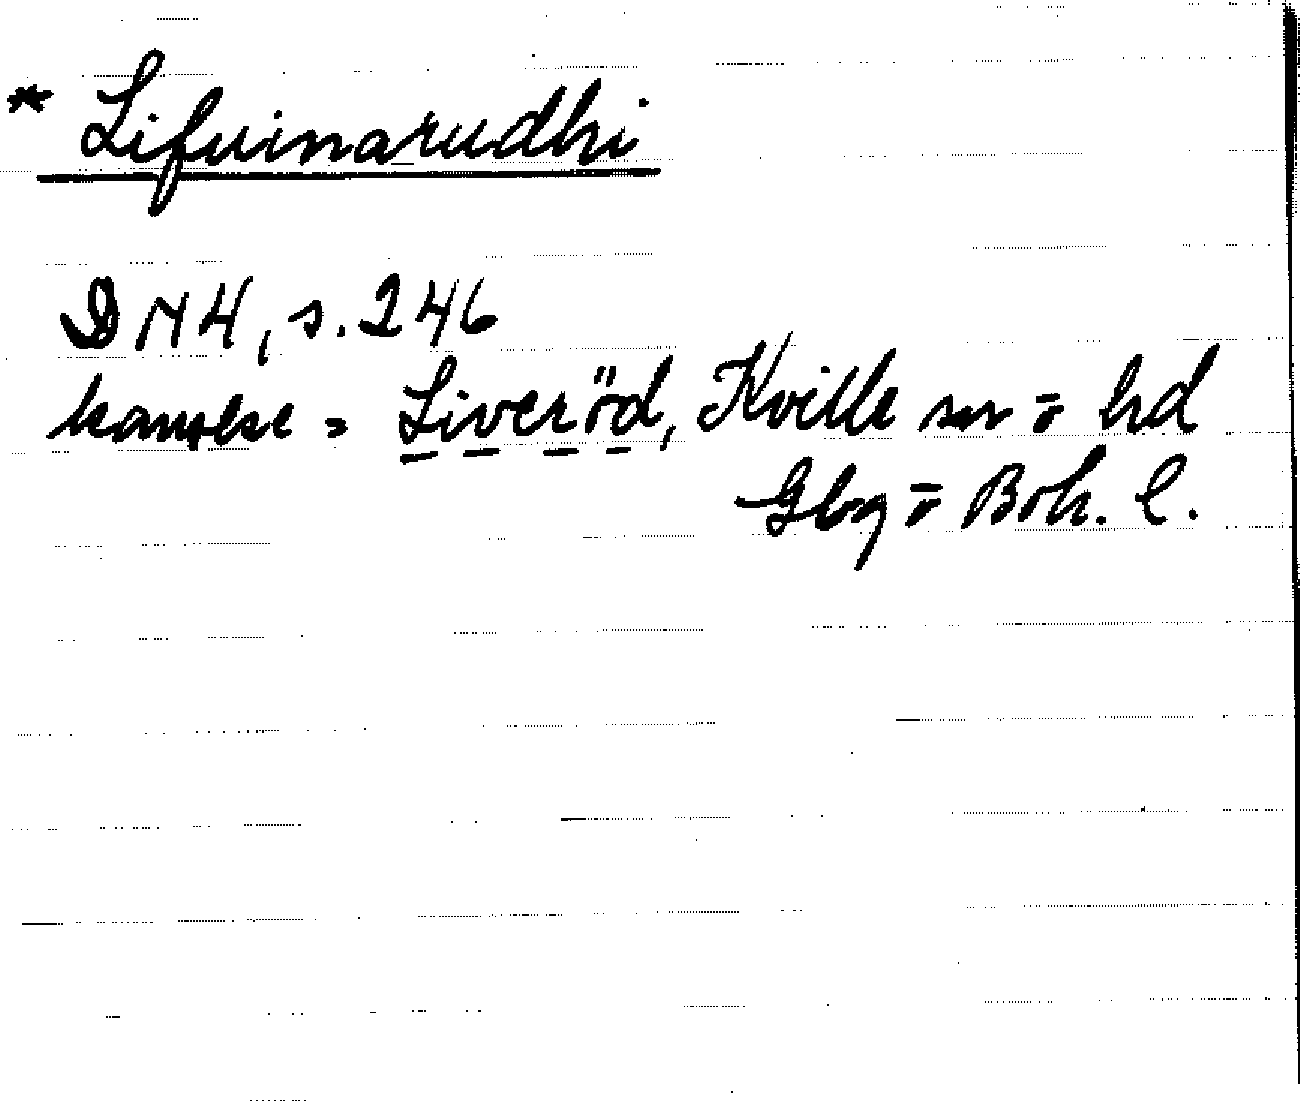 * Lifuinarudhi
DN 4, s. 246
kanske = Liveröd, Kville sn o hd
Gbg o Boh. l.